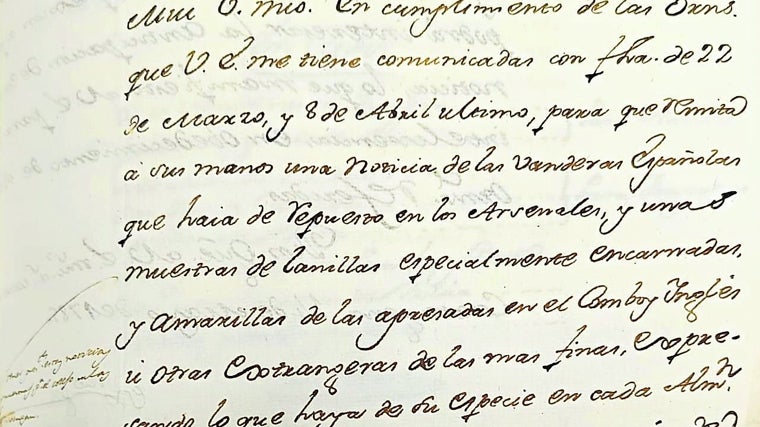 Mui S. mio. En cumplimiento de las Orns.
que V. E. me tiene comunicadas con fha. de 22
de Marzo, y 8 de Abril ultimo, para que remita
a sus manos una Noticia de las vanderas Españolas
que haia de repuesto en los Arsenales, y unas
muestras de lanillas especialmente encarnadas,
y Amarillas de las apresadas en el Comboy Inglés
ú otras Extrangeras de las mas finas, expre-
sando lo que haya de su especie en cada Alm.n